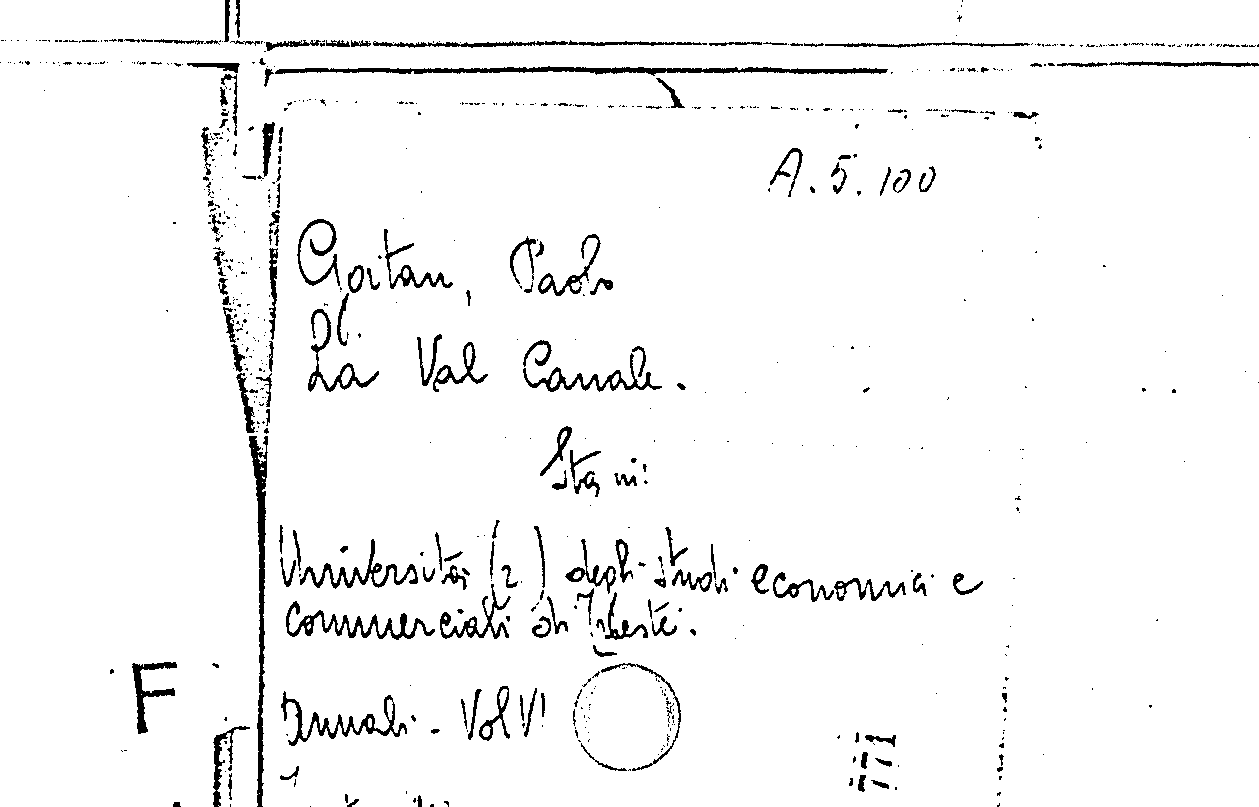 A.5.100
Gaitan, Paolo
La Val Canale.
Sta in:
Università (2) degli studi economici e
commerciali di Trieste.
Annali - Vol VI
F